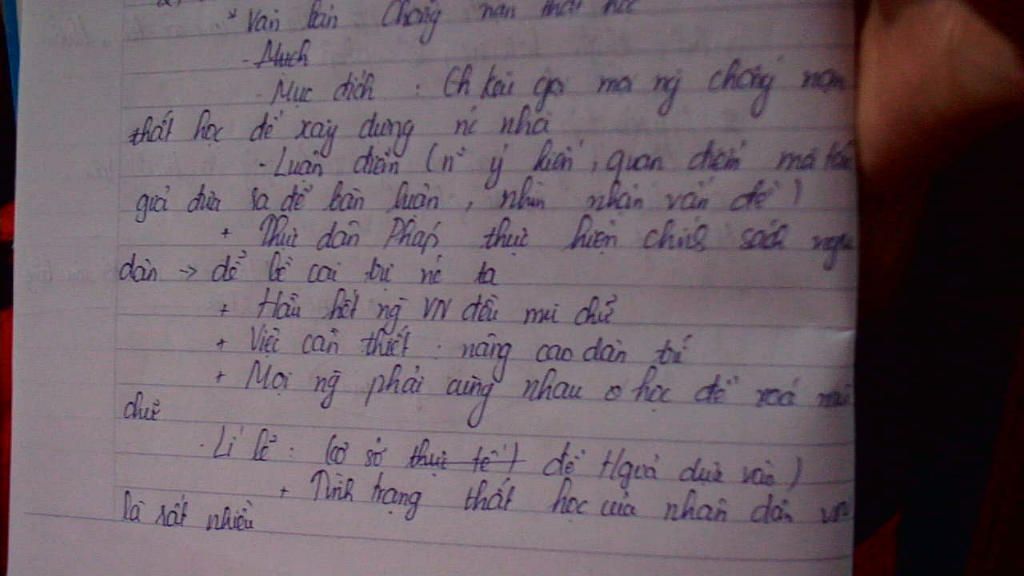 * Văn bản Chống nạn thất học
- Much
- Mục đích : Ch kêu gọi mọi ng chống nạn
thất học để xây dựng nc nhà
- Luận điểm (n² ý kiến, quan điểm mà tác
giả đưa ra để bàn luận, nhìn nhận vấn đề)
+ Thực dân Pháp thực hiện chính sách ngu
dân → để dễ cai trị nc ta
+ Hầu hết ng VN đều mù chữ
+ Việc cần thiết : nâng cao dân trí
+ Mọi ng phải cùng nhau học để xoá mù
chữ
- Lí lẽ : (cơ sở thực tế) để t/giả dựa vào)
+ Tình trạng thất học của nhân dân VN
là rất nhiều